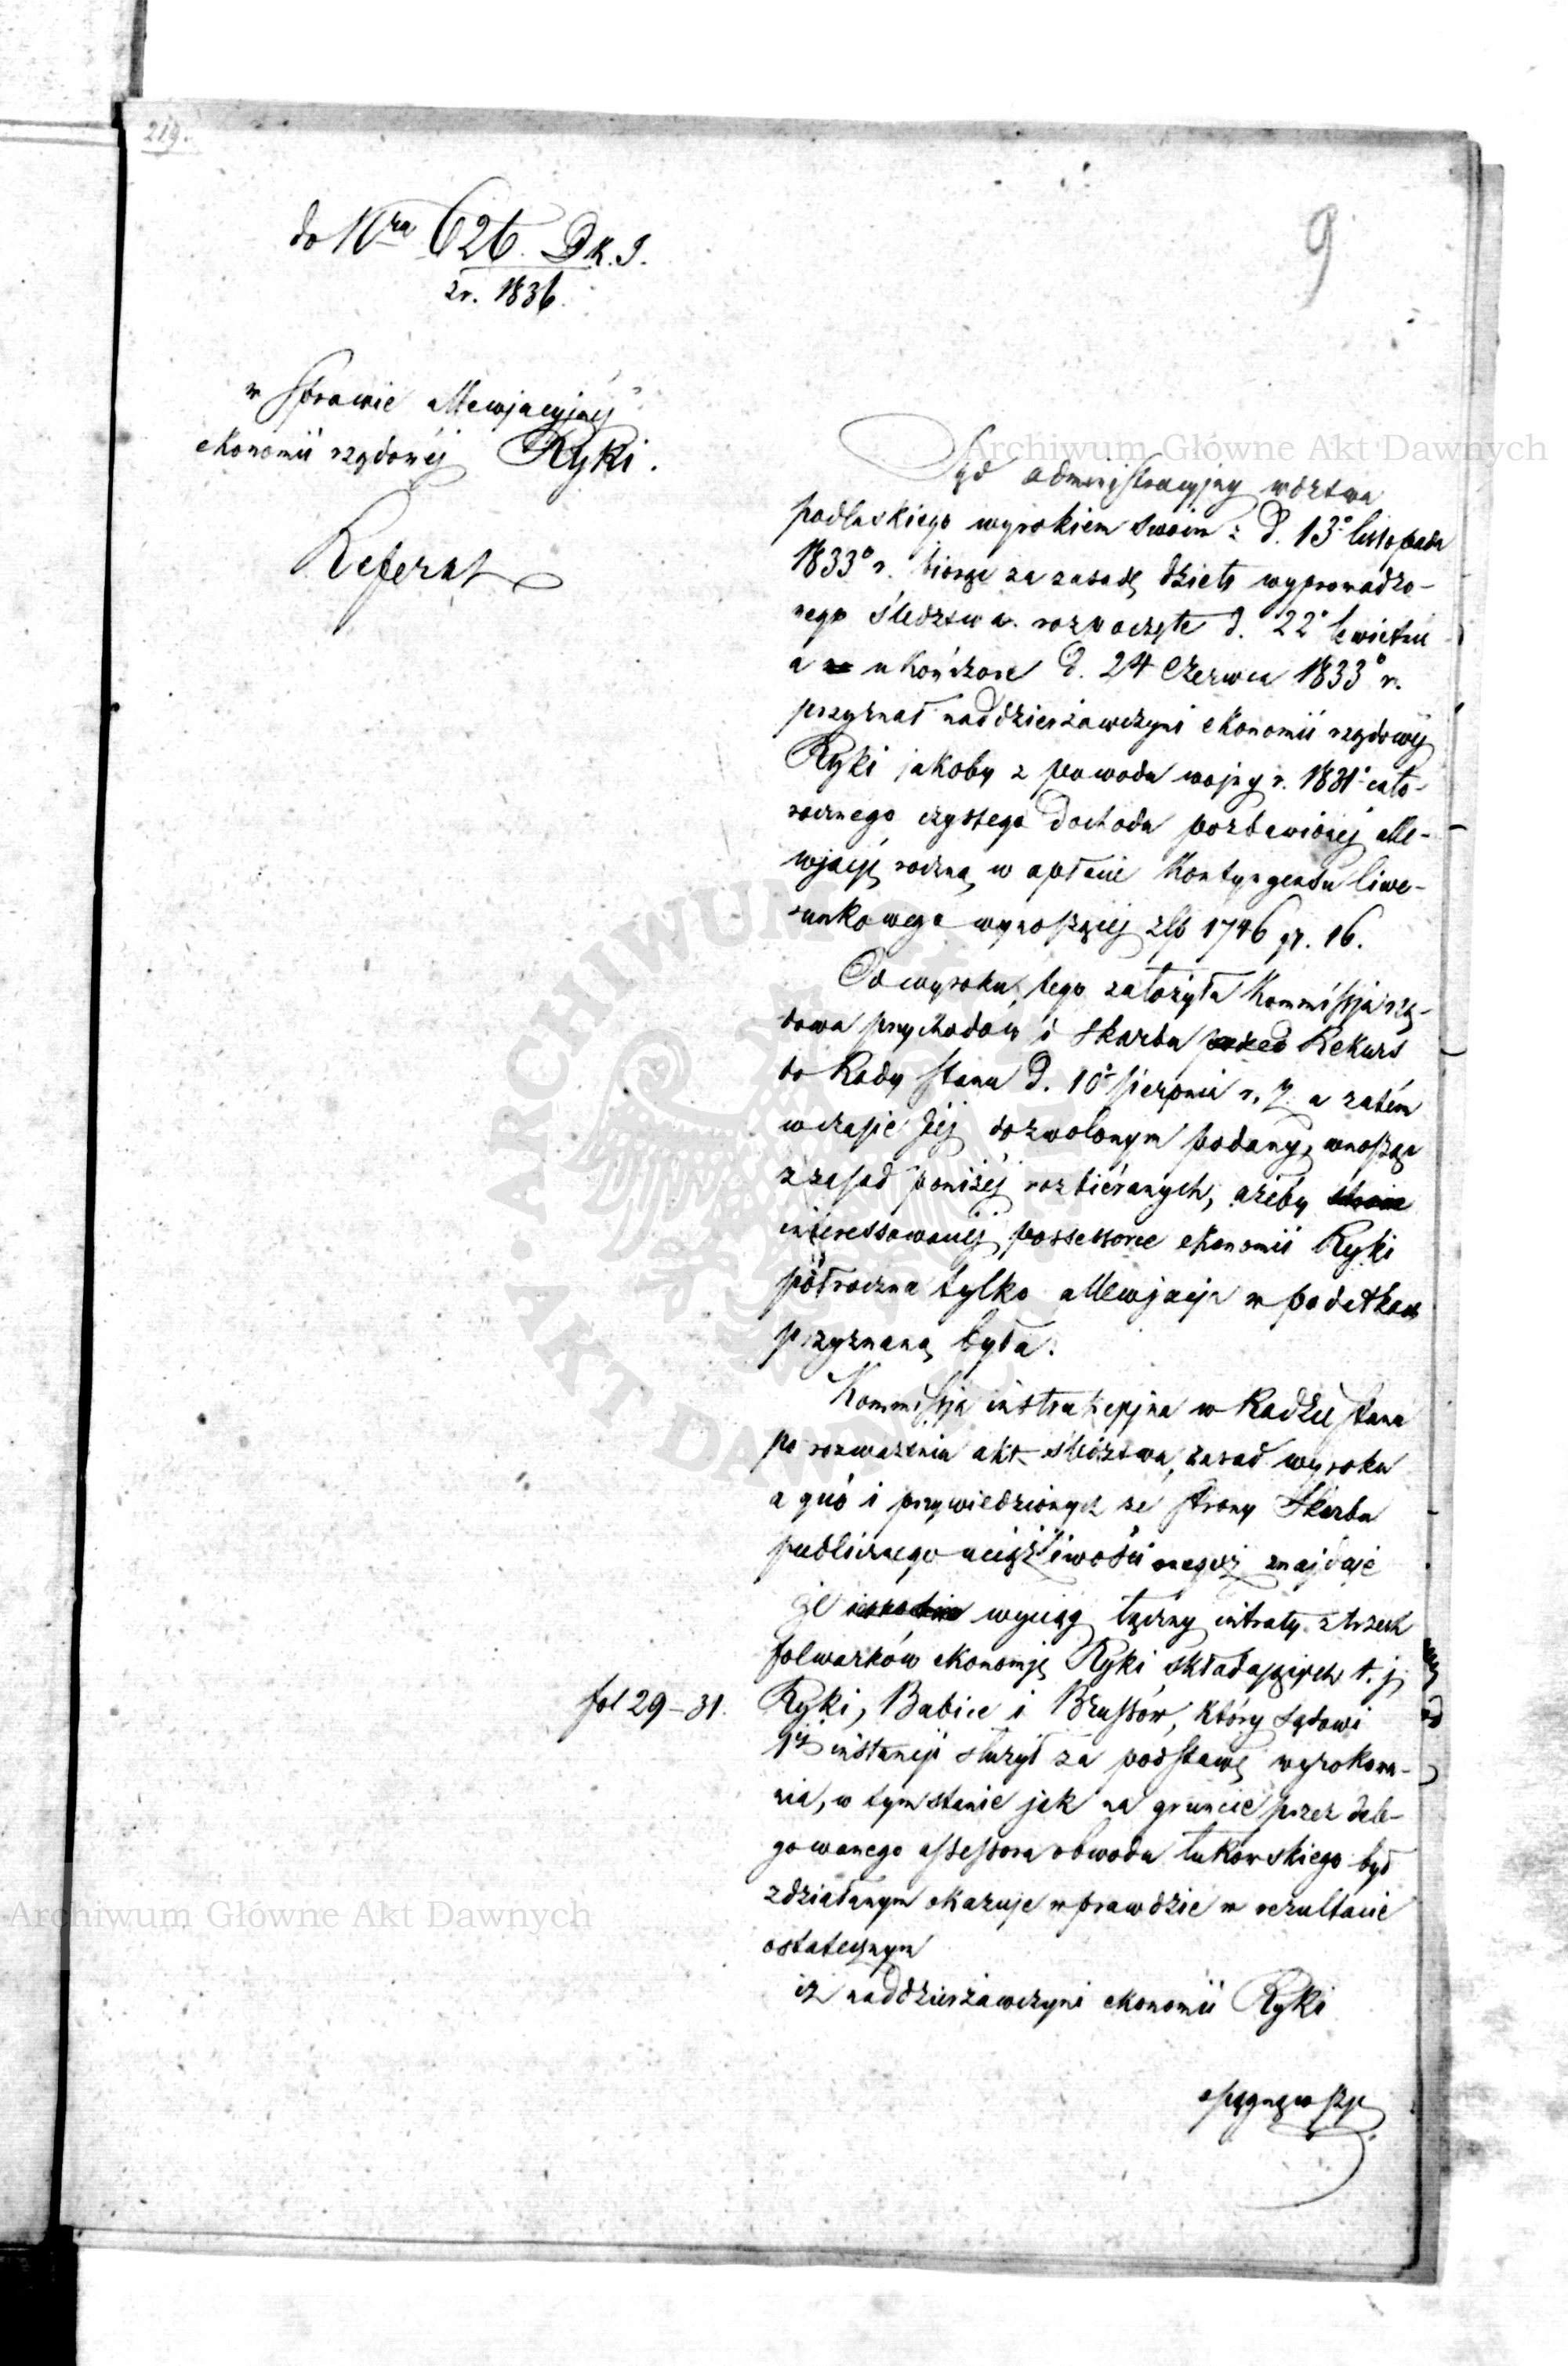 219.
9
do Nra 626. D.K.I.
z r. 1836.
w sprawie allewjacyjnéj
ekonomii rządowéj Ryki.
Referat
Sąd administracyjny wdztwa
podlaskiego wyrokiem swoim z d. 13o listopada
1833o r. biorąc za zasadę dzieło wyprowadzo-
nego śledztwa rozpoczęte d. 22o kwietnia
a ukończone d. 24 Czerwca 1833o r.
przyznał naddzierżawczyni ekonomii rządowéj
Ryki jakoby z powodu wojny r. 1831o cało-
rocznego czystego dochodu pozbawionéj alle-
wjacją roczną w opłacie Kontyngensu liwe-
runkowego wynoszącéj złp 1746 gr. 16.
Od wyroku tego założyła Kommissja rzą-
dowa przychodów i skarbu Rekurs
do Rady stanu d. 10o sierpnia r. z. a zatém
w czasie jéj dozwolonym podany, wnosząc
z zasad poniżéj rozbiéranych, ażeby
interessowanéj possessorce ekonomii Ryki
półroczna tylko allewjacja w podatkach
przyznaną była.
Kommissja instrukcyjna w Radzie stanu
po rozważeniu akt śledztwa, zasad wyroku
a quo i przywiedzionych ze strony Skarbu
publicznego uciążliwości znajduje
że wyciąg łączny intraty z trzech
folwarków ekonomję Ryki składających t. j.
fol 29-31.
Ryki, Babice i Brussów, który sądowi
1éj instancji służył za podstawę wyrokowa-
nia, w tym stanie jak na gruncie przez dele-
gowanego assessora obwodu łukowskiego był
zdziałanym okazuje wprawdzie w rezultacie
ostatecznym
iż naddzierżawczyni ekonomii Ryki
osiągnąwszy
Archiwum Główne Akt Dawnych
Archiwum Główne Akt Dawnych